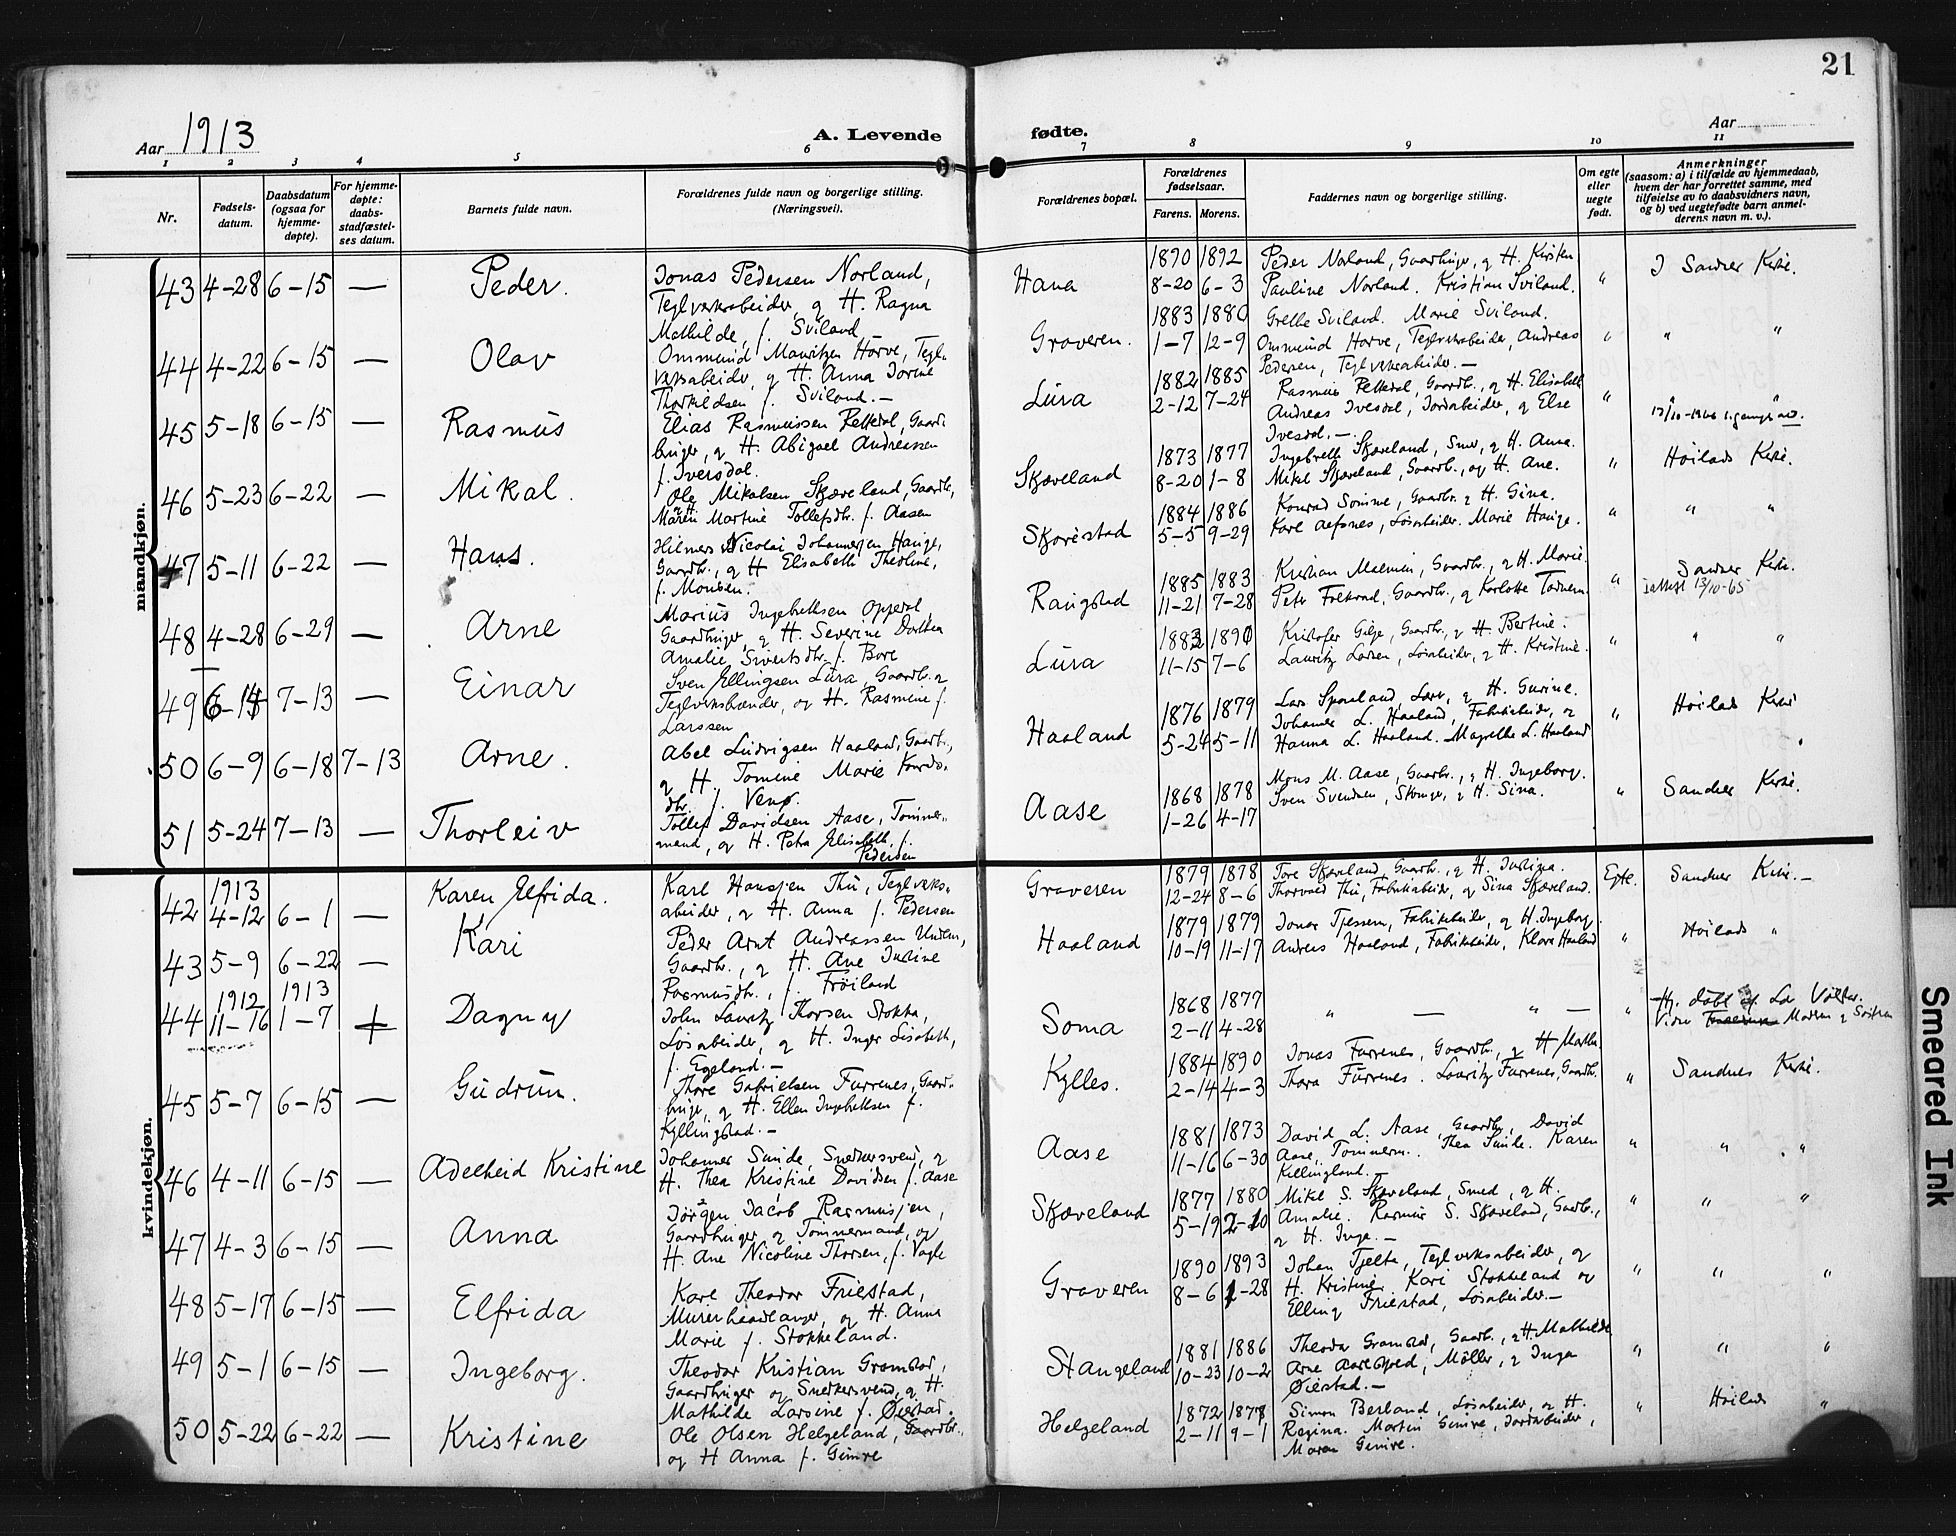 21
Aar 1913
A. Levende fødte.
Aar
1 2 3 4 5 6 7 8 9 10 11
Nr.
Fødsels-
datum.
Daabsdatum
(ogsaa for
hjemme-
døpte).
For hjemme-
døpte:
daabs-
stadfæstel-
ses datum.
Barnets fulde navn.
Forældrenes fulde navn og borgerlige stilling.
(Næringsvei).
Forældrenes bopæl.
Forældrenes
fødselsaar.
Farens. Morens.
Faddernes navn og borgerlige stilling.
Om egte
eller
uegte
født.
Anmerkninger
(saasom: a) i tilfælde av hjemmedaab,
hvem der har forrettet samme, med
tilføielse av to daabsvidners navn,
og b) ved uegtefødte barn anmel-
derens navn m. v.).
mandkjøn.
43 4-28 6-15 — Peder.
Jonas Pedersen Norland,
Teglverksarbeider, og H. Ragna
Mathilde, f. Sviland —
Hana
1890 1892
8-20 6-3
Peder Norland, Gaardbruger, og H. Kirsten
Pauline Norland. Kristian Sviland.
Grethe Sviland. Marie Sviland.
" I Sandnes Kirke.
44 4-22 6-15 — Olav
Ommund Mauritzen Horve, Tegl-
verksarbeider, og H. Anna Jorine
Thorkildsen f. Sviland. —
Graveren.
1883 1880
1-7 12-9
Ommund Horve, Teglverksarbeider, Andreas
Pedersen, Teglverksarbeider. —
" " "
45 5-18 6-15 — Rasmus
Elias Rasmussen Retledal, Gaard-
bruger, og H. Abigael Andreassen
f. Iversdal.
Lura
1882 1885
2-12 7-24
Rasmus Retledal, Gaardb., og H. Elisabeth
Andreas Ivesdal, Jordarbeider, og Else
Ivesdal. —
" " "
46 5-23 6-22 — Mikal.
Ole Mikalsen Skjæveland, Gaardb.,
og H. Maren Martine Tollefsdtr. f. Aasen
Skjæveland
1873 1877
8-20 1-8
Ingebrett Skjæveland, Smed, og H. Anna.
Mikal Skjæveland, Gaardb., og H. Ane.
" Høilands Kirke.
47 5-11 6-22 — Hans.
Hilmers Nicolai Johannesen Hauge,
Gaardb., og H Elisabeth Theoline,
f. Monsen.
Skjørestad
1884 1886
5-5 9-29
Konrad Somme, Gaardbr. og H. Gina.
Karl Aefsnes, Løsarbeider. Marie Hauge.
" " "
48 4-28 6-29 — Arne
Marius Ingebretsen Oppedal,
Gaardbruger, og H. Severine Dorthea
Amalie Sivertsdtr. f. Bore
Raugstad
1885 1883
11-21 7-28
Kristian Malmin, Gaardbr., og H. Marie.
" Sandnes Kirke.
49 6-14 7-13 — Einar
Sven Ellingsen Lura, Gaardb. og
Teglverksbrænder, og H. Rasmine f.
Larssen
Lura
1882 1890
11-15 7-6
Kristofer Gilje, Gaardbr., og H. Bertine.
Lauritz Larsen, Løsarbeider, og H. Kristine.
" " "
50 6-9 6-18 7-13 Arne.
Abel Ludvigsen Haaland, Gaardb.,
og H. Tomine Marie
dtr. f.
Haaland
1876 1879
5-24 5-11
Johannes L. Haaland, Fabrikarbeider, og
Hanna L. Haaland. Magrethe L. Haaland
" Høilands Kirke
51 5-24 7-13 — Thorleiv
Tollef Davidsen Aase, Tømmer-
mand, og H. Petra Elisabeth f.
Pedersen
Aase
1868 1878
1-26 4-17
Mons M. Aase, Gaardbr., og H. Ingeborg.
Sven Svendsen, og H. Sina.
" Sandnes Kirke.
kvindekjøn.
1913
42 4-12 6-1 — Karen Elfrida.
Karl Hansjen Thu, Teglverks-
arbeider, og H. Anna f. Pedersen
Graveren
1879 1878
12-24 8-6
Tore Skjæveland, Gaardb., og H. Justina.
Thorvald Thu, Fabrikarbeider, og Sina Skjæveland.
Egte. Sandnes Kirke. —
43 5-9 6-22 — Kari
Peder Arnt Andreassen Undem,
Gaardb., og H. Ane Justine
Rasmusdtr., f. Frøiland
Haaland
1879 1879
10-19 11-17
Jonas Tjessem, Fabrikarbeider, og H. Ingeborg.
Andreas Haaland, Fabrikarbeider, Klara Haaland
" Høilands "
1912 1913
44 11-16 1-7 + Dagny
John Lauritz Thorsen Stokka,
Løsarbeider, og H. Inger Lisabeth,
f. Egeland. —
Soma
1868 1877
2-11 4-28
" — " —
" Hj. døbt af
Moderen og Søstren
45 5-7 6-15 — Gudrun.
Thore Gabrielsen Furrenes, Gaard-
bruger, og H. Ellen Ingebretsen f.
Kyllingstad. —
Kylles.
1884 1890
2-14 4-3
Jonas Furrenes, Gaardb., og H Marthe.
Thora Furrenes. Lauritz Furrenes, Gaardb.
" Sandnes Kirke.
46 4-11 6-15 — Adelheid Kristine
Johannes Sunde, Snedkersvend, og
H. Thea Kristine Davidsen f. Aase
Aase
1881 1873
11-16 6-30
David L. Aase, Gaardbr., David
Aase, Tømmerm.. Thea Sunde. Karen
Killingland.
" " "
47 4-3 6-15 — Anna
Jørgen Jacob Rasmusjen,
Gaardbruger og Tømmermand, og
H. Ane Nicoline Thorsen, f. Vagle
Skjæveland
1877 1880
5-19 2-10
Mikal S. Skjæveland, Smed, og H.
Amalie. Rasmus S. Skjæveland, Gaardb.,
og H. Inge. —
" " "
48 5-17 6-15 — Elfrida
Karl Theodor Friestad,
Murerhaandlanger, og H. Anna
Marie f. Stokkeland.
Graveren
1890 1893
8-6 1-28
Johan Tjelta, Teglverksarbeider, og
H. Kristine. Kari Stokkeland og
Elling Friestad, Løsarbeider. —
" " "
49 5-1 6-15 — Ingeborg.
Theodor Kristian Gramstad,
Gaardbruger og Snedkersvend, og H.
Mathilde Larsine f. Øiestad.
Stangeland
1881 1886
10-23 10-2
Theodor Gramstad, Gaardb., og H. Mathilde
Arne Aarestved, Møller, og Inga
Øiestad. —
" " "
50 5-22 6-22 — Kristine
Ole Olsen Helgeland, Gaardbr.,
og H Anna f. Gimre
Helgeland
1872 1877
2-11 9-1
Simon Berland, Løsarbeider, og H.
Regina. Martin Gimre, Jordarbeider,
Maren Gimre.
" Høilands "
Smeared Ink